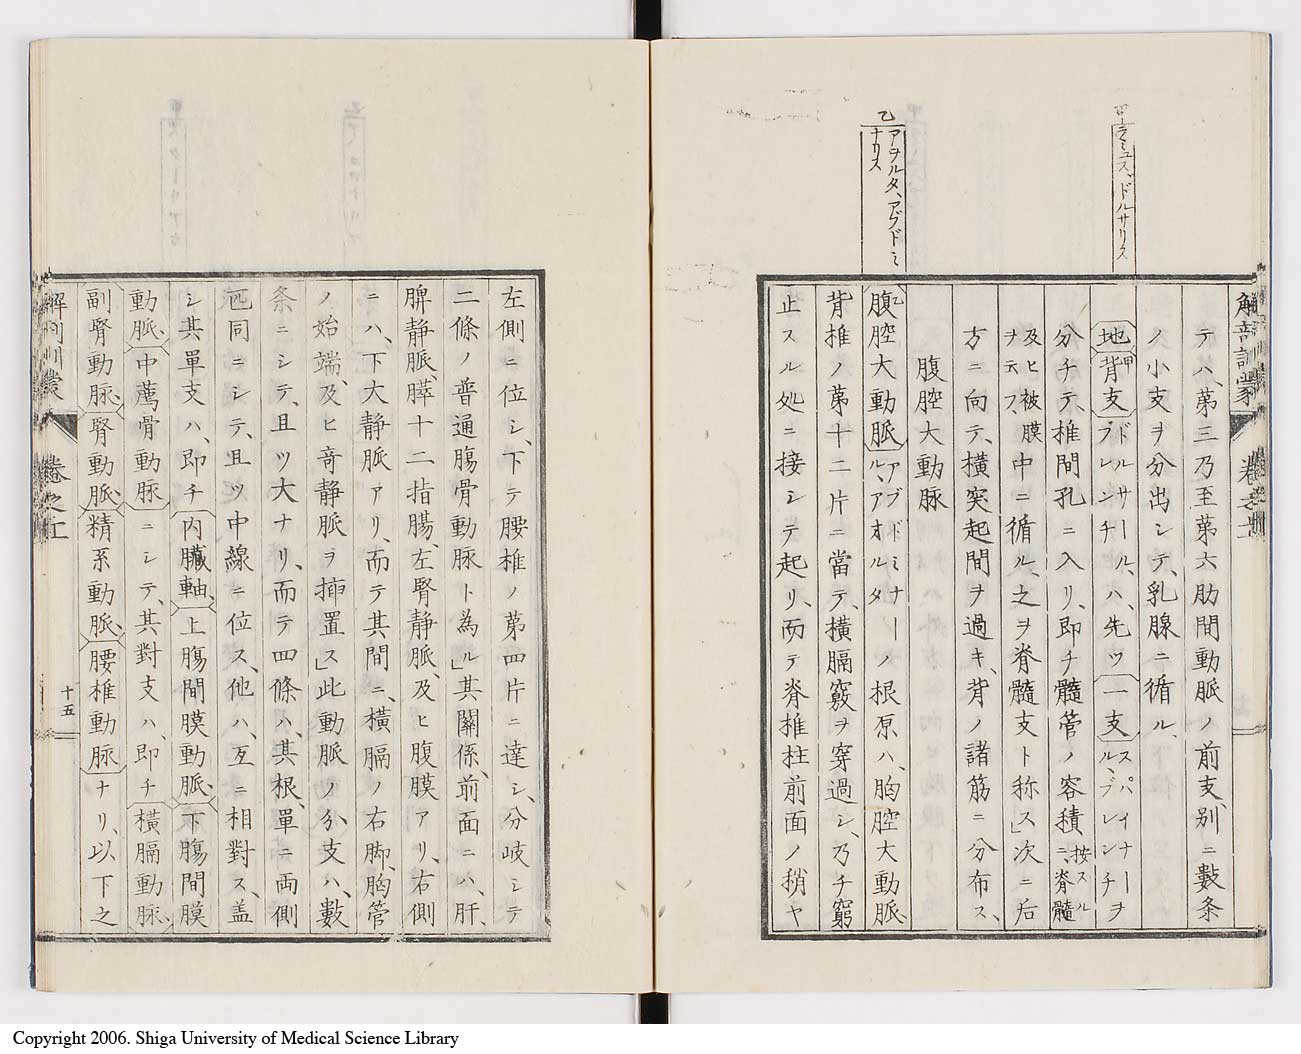 甲ラミュス、ドルサリス
乙アヲルタ、アブドミ
ナリス
解剖訓蒙
テハ、第三乃至第六肋間動脈ノ前支、別ニ數条
ノ小支ヲ分出シテ、乳腺ニ循ル、
地甲背支ドルサール、ブレンチハ、先ツ一支スパイナール、ブレンチヲ
分チテ、椎間孔ニ入リ、即チ髓管ノ容積ニ、按スル脊髓
及ヒ被膜ヲ云フ、中ニ循ル、之ヲ脊髓支ト称ス」次ニ后
方ニ向テ、横突起間ヲ過キ、背ノ諸筋ニ分布ス、
腹腔大動脈
乙腹腔大動脈アブドミナール、アオルタノ根原ハ、胸腔大動脈
背椎ノ第十二片ニ當テ、橫膈竅ヲ穿過シ、乃チ窮
止スル処ニ接シテ起リ、而テ脊椎柱前面ノ稍ヤ
左側ニ位シ、下テ腰椎ノ第四片ニ達シ、分岐シテ
二條ノ普通膓骨動脉ト為ル」其關係、前面ニハ、肝、
脾静脈、膵十二指腸、左腎静脈、及ヒ腹膜アリ、右側
ニハ、下大静脈アリ、而テ其間ニ、横膈ノ右脚、胸管
ノ始端、及ヒ竒静脈ヲ挿置ス」此動脈ノ分支ハ、數
条ニシテ、且ツ大ナリ、而テ四條ハ、其根、單ニ両側
匹同ニシテ、且ツ中線ニ位ス、他ハ、互ニ相對ス、盖
シ其單支ハ、即チ内臓軸、上膓間膜動脈、下膓間膜
動脈、中薦骨動脈ニシテ、其對支ハ、即チ橫膈動脉、
副腎動脉、腎動脈、精系動脈、腰椎動脉ナリ、以下之
十五